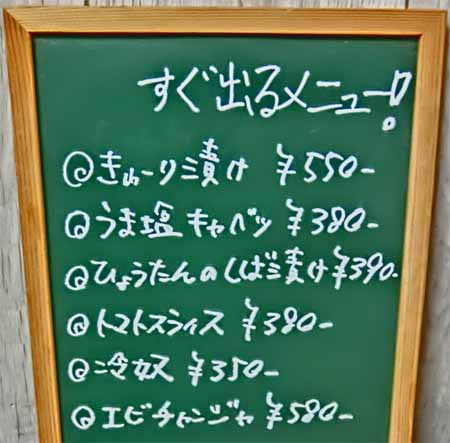 すぐ出るメニュー!
◎きゅーり漬け ¥550-
◎うま塩キャベツ ¥380-
◎ひょうたんのしば漬け¥390-
◎トマトスライス ¥390-
◎冷奴 ¥350-
◎エビチャンジャ ¥580-